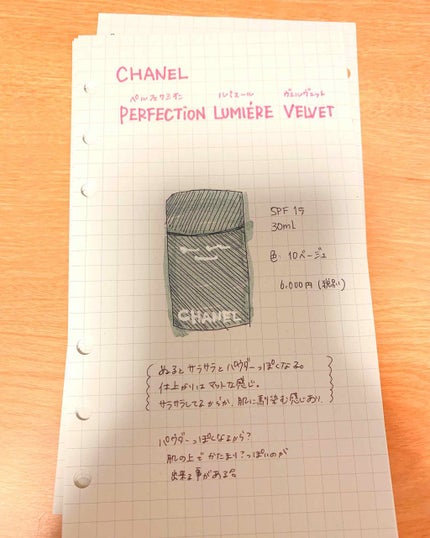 CHANEL
ペルフェクシオン ルミエール ヴェルヴェット
PERFECTION LUMIÉRE VELVET
SPF 15
30mL
色 10ベージュ
6,000円 (税別)
CHANEL
ぬるとサラサラとパウダーっぽくなる。
仕上がりはマットな感じ。
サラサラしてるからか、肌に馴染む感じあり
パウダーっぽくなるから?
肌の上でかたまり?っぽいのが
出来る事がある